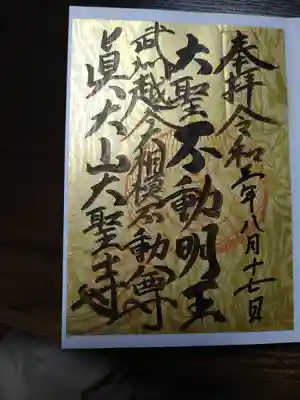 奉拝令和三年八月十七日
大聖不動明王
武州越谷大相模不動尊
眞大山大聖寺